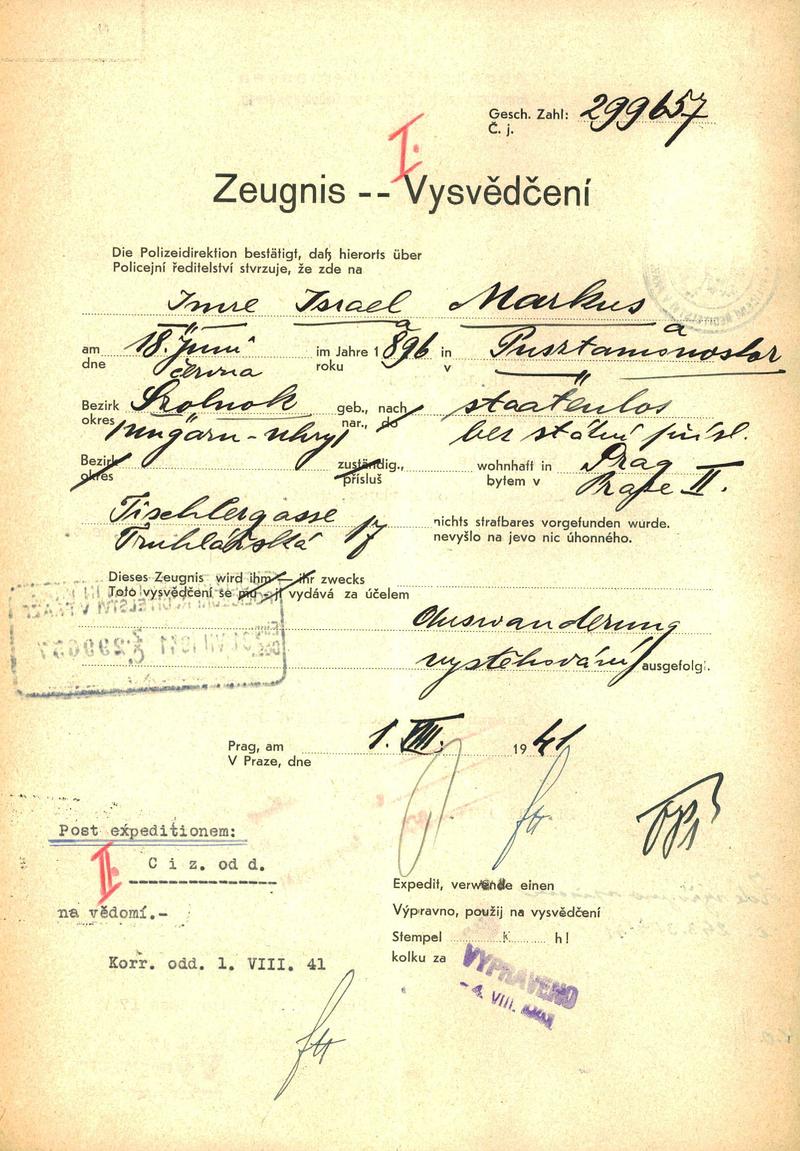 Gesch. Zahl: 299657
Č. j.
I.
Zeugnis -- Vysvědčení
Die Polizeidirektion bestätigt, daß hierorts über
Policejní ředitelství stvrzuje, že zde na
Imre Israel Markus
am 18. Juni im Jahre 1896 in Pusztamonostor
dne června roku v
Bezirk Szolnok geb., nach staatenlos
okres Ungarn-Uhry nar., do bez státní přísl.
Bezirk zuständig., wohnhaft in Prag
okres přísluš bytem v Praze II.
Tischlergasse 17 nichts strafbares vorgefunden wurde.
Truhlářská nevyšlo na jevo nic úhonného.
Dieses Zeugnis wird ihm — ihr zwecks
Toto vysvědčení se mu - jí vydává za účelem
Auswanderung
vystěhování ausgefolgt.
Prag, am 1. VIII. 1941
V Praze, dne
Post expeditionem:
II. C i z. od d.
na vědomí.-
Korr. odd. 1. VIII. 41
Expedit, verwende einen
Výpravno, použij na vysvědčení
Stempel K h!
kolku za
VYPRAVENO
- 4. VIII. 1941